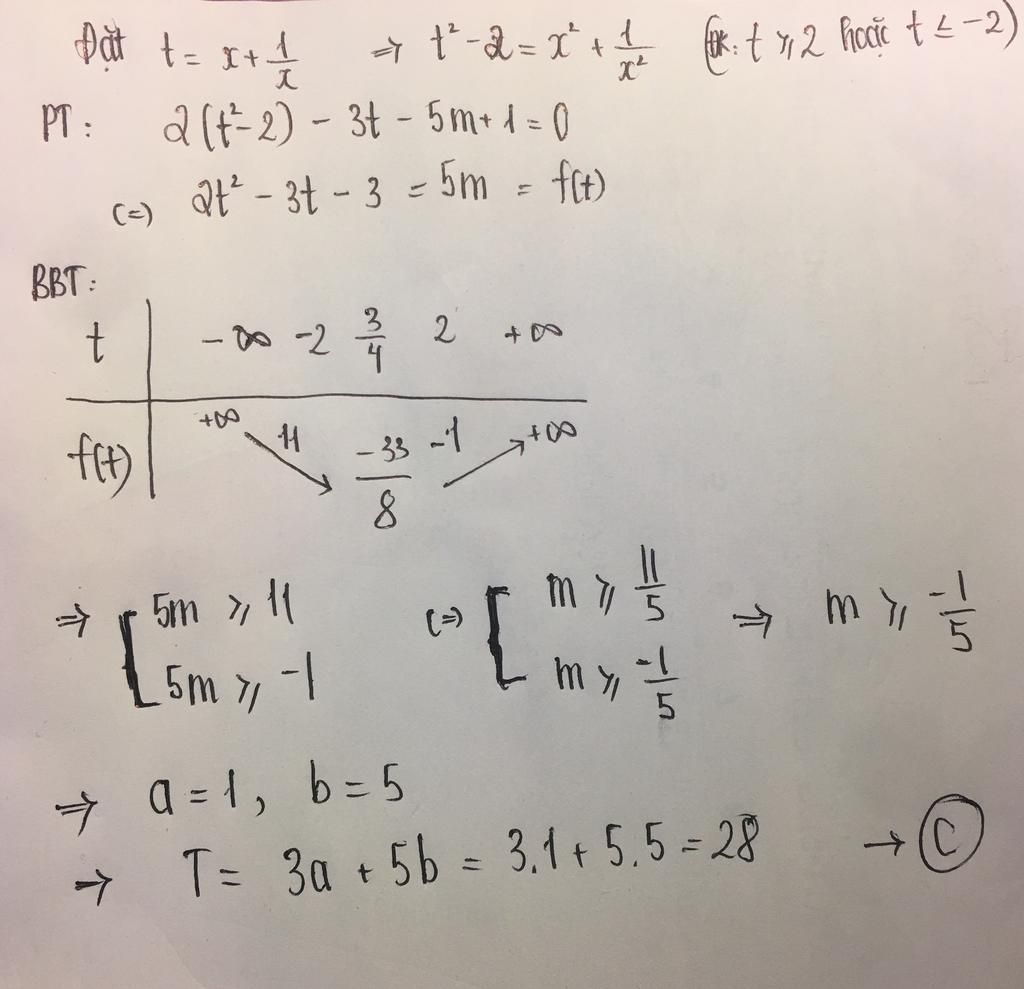 Đặt t = x + 1/x ⇒ t² - 2 = x² + 1/x² (đk: t ⩾ 2 hoặc t ≤ -2)
PT: 2(t² - 2) - 3t - 5m + 1 = 0
(=) 2t² - 3t - 3 = 5m = f(t)
BBT:
t | -∞ -2 3/4 2 +∞
f(t) | +∞ 11 -33/8 -1 +∞
⇒ [ 5m ⩾ 11 (=) [ m ⩾ 11/5 ⇒ m ⩾ -1/5
5m ⩾ -1 m ⩾ -1/5
⇒ a = 1, b = 5
⇒ T = 3a + 5b = 3.1 + 5.5 = 28 → C